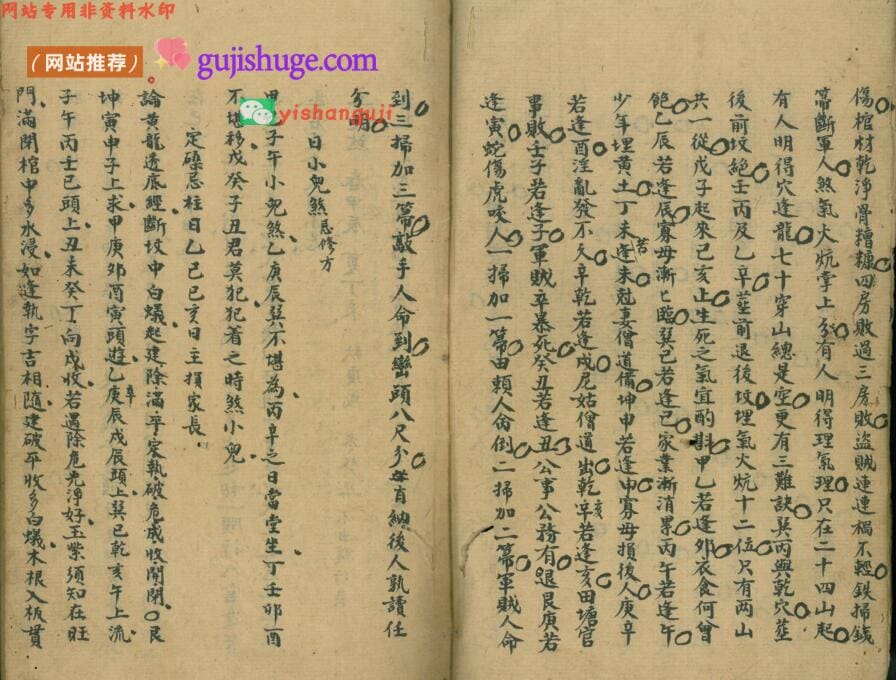 网站专用非资料水印
（网站推荐）
gujishuge.com
yishanguji
傷棺材乾淨骨糟糠四房敗過三房敗盜賊連連禍不輕鉄掃錢
箒斷軍人煞氣火炕掌上分有人明得理氣理只在二十四山起
有人明得穴逢龍七十穿山總是空更有三難訣巽丙與乾穴塟
後前坟絶壬丙及乙辛塟前退後坟埋氣火炕十二位只有两山
共一從戊子起來己亥止生死之氣宜酌斟甲乙若逢卯衣食何曾
飽乙辰若逢辰寡母漸匕臨巽己若逢巳家業漸消累丙午若逢午
少年埋黄土丁未若逢未尅妻僧道備坤申若逢申寡母損後人庚辛
若逢酉淫亂發不久辛乾若逢戍尼姑僧道出乾亥若逢亥田塘官
事敗壬子若逢子軍賊卒暴死癸丑若逢丑公事公務有退艮庚若
逢寅蛇傷虎咬人一掃加一箒田賴人命倒二掃加二箒軍賊人命
到三掃加三箒敲手人命到巒頭八尺分毋肯納後人孰讀任
分明
日小兒煞忌修方
甲己子午小兒煞乙庚辰巽不堪為丙辛之日當堂坐丁壬卯酉
不堪移戊癸子丑君莫犯犯着之時煞小兒
定磉忌柱日乙巳己亥日主損家長
論黄龍透底經斷坟中白蟻起建除滿平定執破危成收開閉艮
坤寅申子上求甲庚卯酉寅頭遊乙辛庚辰戍辰頭上巽巳乾亥午上流
子午丙壬巳頭上丑未癸丁向戍收若遇除危尭淨好玉紫須知在旺
門滿閉棺中多水浸如逢執字吉相隨建破平收多白蟻木根入板貫